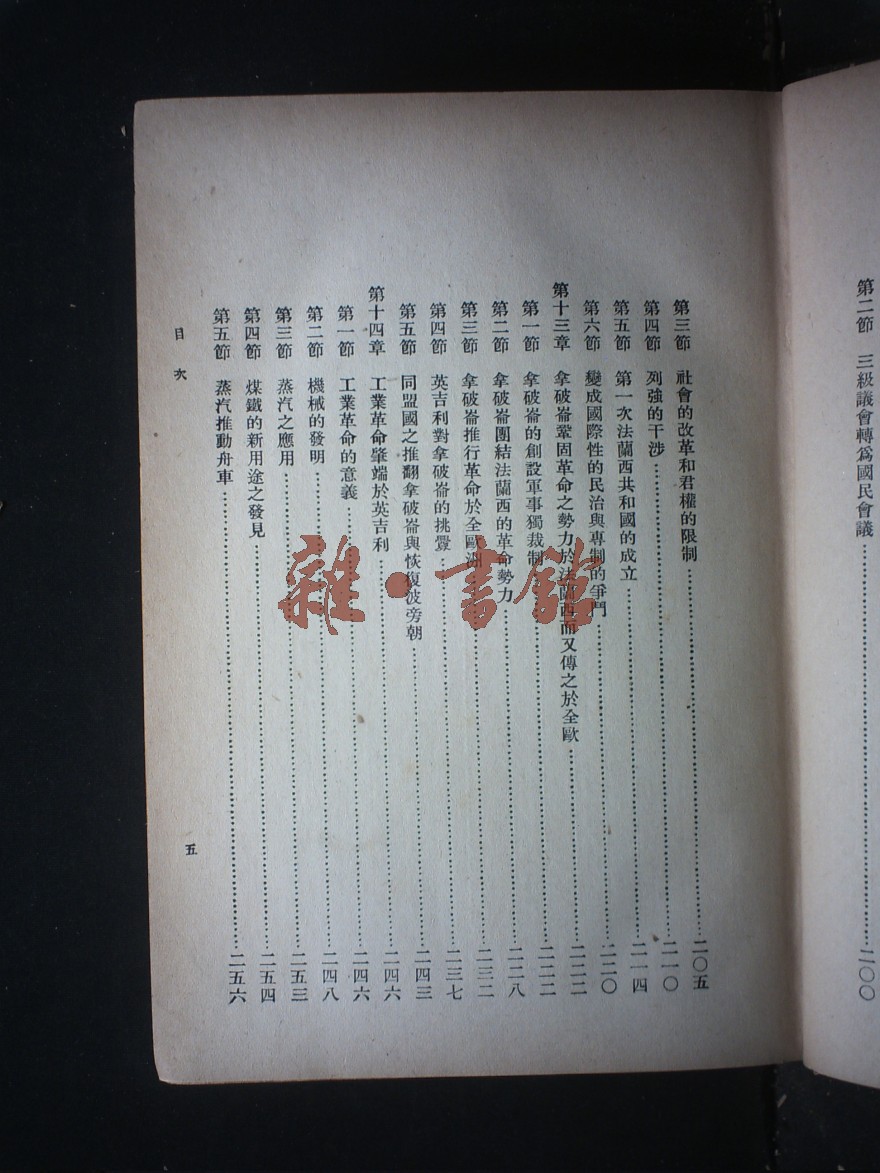 第二節　三級議會轉爲國民會議……二〇〇
第三節　社會的改革和君權的限制……二〇五
第四節　列強的干涉……二一〇
第五節　第一次法蘭西共和國的成立……二一四
第六節　變成國際性的民治與專制的爭鬥……二二〇
第十三章　拿破崙鞏固革命之勢力於法蘭西而又傳之於全歐……二二二
第一節　拿破崙的創設軍事獨裁制……二二二
第二節　拿破崙團結法蘭西的革命勢力……二二八
第三節　拿破崙推行革命於全歐洲……二三二
第四節　英吉利對拿破崙的挑釁……二三七
第五節　同盟國之推翻拿破崙與恢復波旁朝……二四三
第十四章　工業革命肇端於英吉利……二四六
第一節　工業革命的意義……二四六
第二節　機械的發明……二四八
第三節　蒸汽之應用……二五三
第四節　煤鐵的新用途之發見……二五四
第五節　蒸汽推動舟車……二五六
目次
五
雜·書館